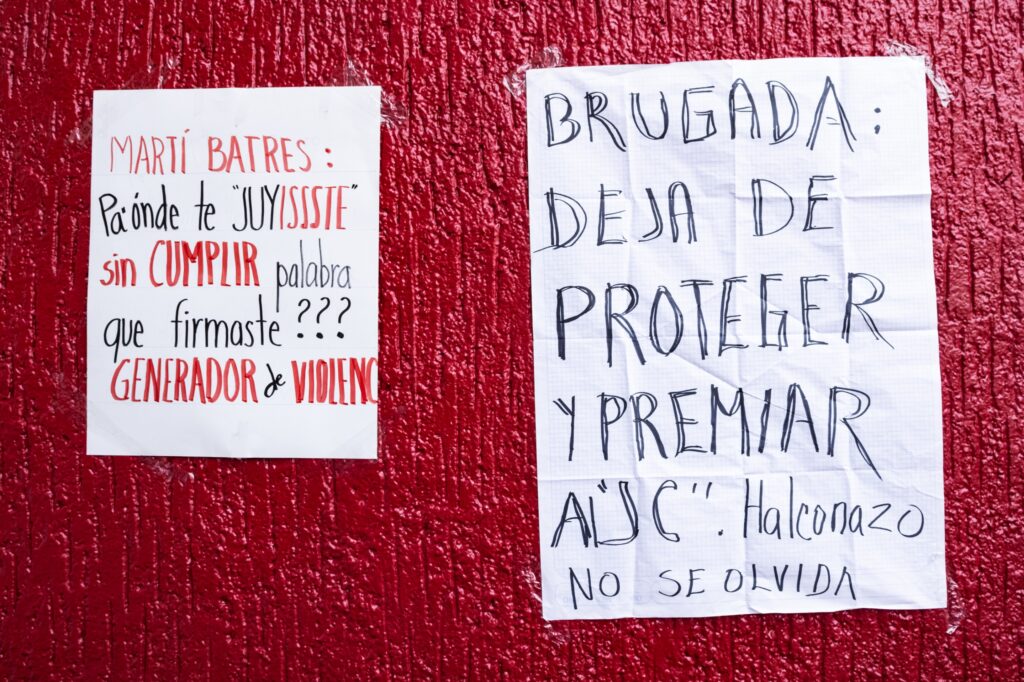 MARTÍ BATRES:
Pa'ónde te "JUYISSSTE"
sin CUMPLIR palabra
que firmaste ???
GENERADOR de VIOLENC
BRUGADA:
DEJA DE
PROTEGER
Y PREMIAR
A "JC". Halconazo
NO SE OLVIDA